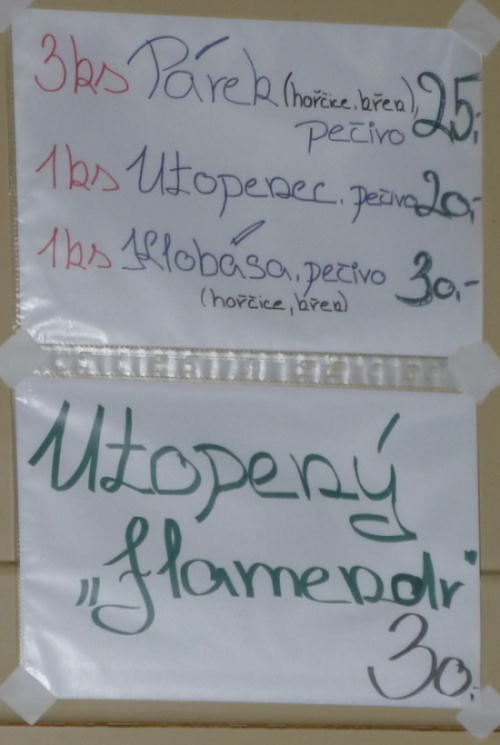 3ks Párek (hořčice, křen), 25,-
pečivo
1ks Utopenec, pečivo 20,-
1ks Klobása, pečivo 30,-
(hořčice, křen)
Utopený
„flamendr"
30,-